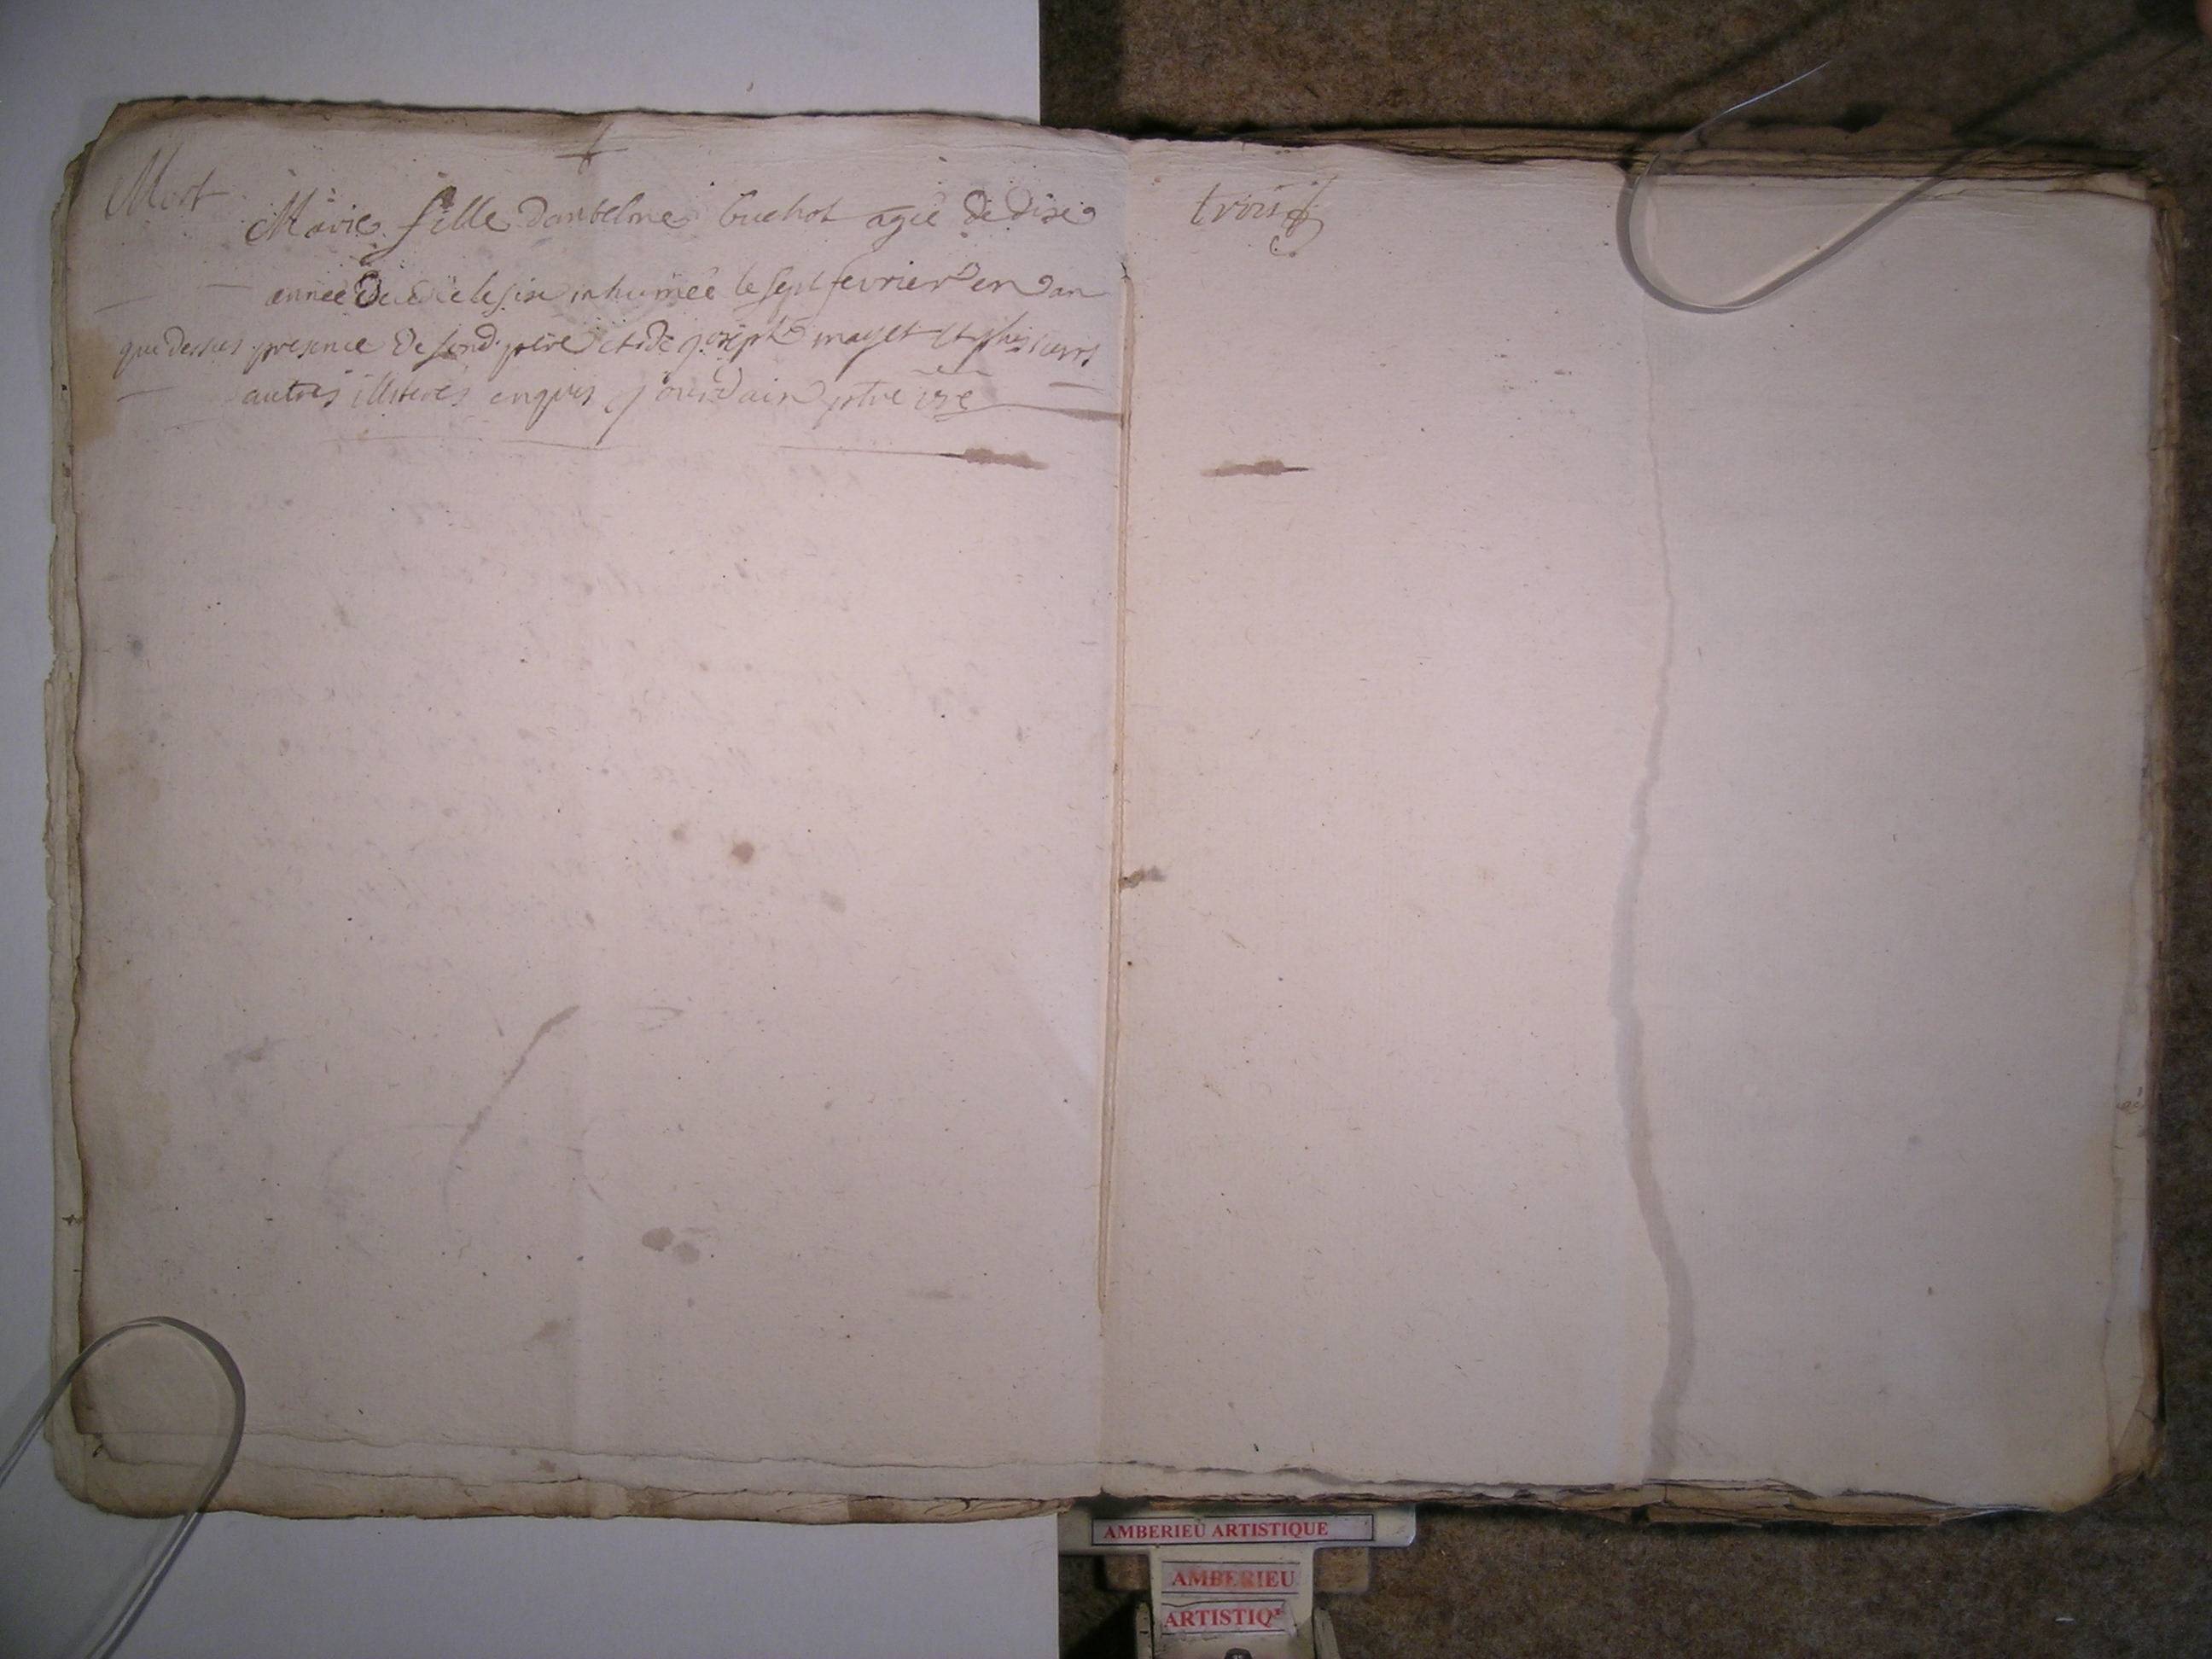 Mort
Marie fille dantelme buchot agée de dixe
année decedée le six inhumée le sept fevrier en dan
que dessus presence de sond. pere et de joseph mayet et plusieurs
autres illiterés enquis jourdain ptre vre
trois
AMBERIEU ARTISTIQUE
AMBERIEU
ARTISTIQ